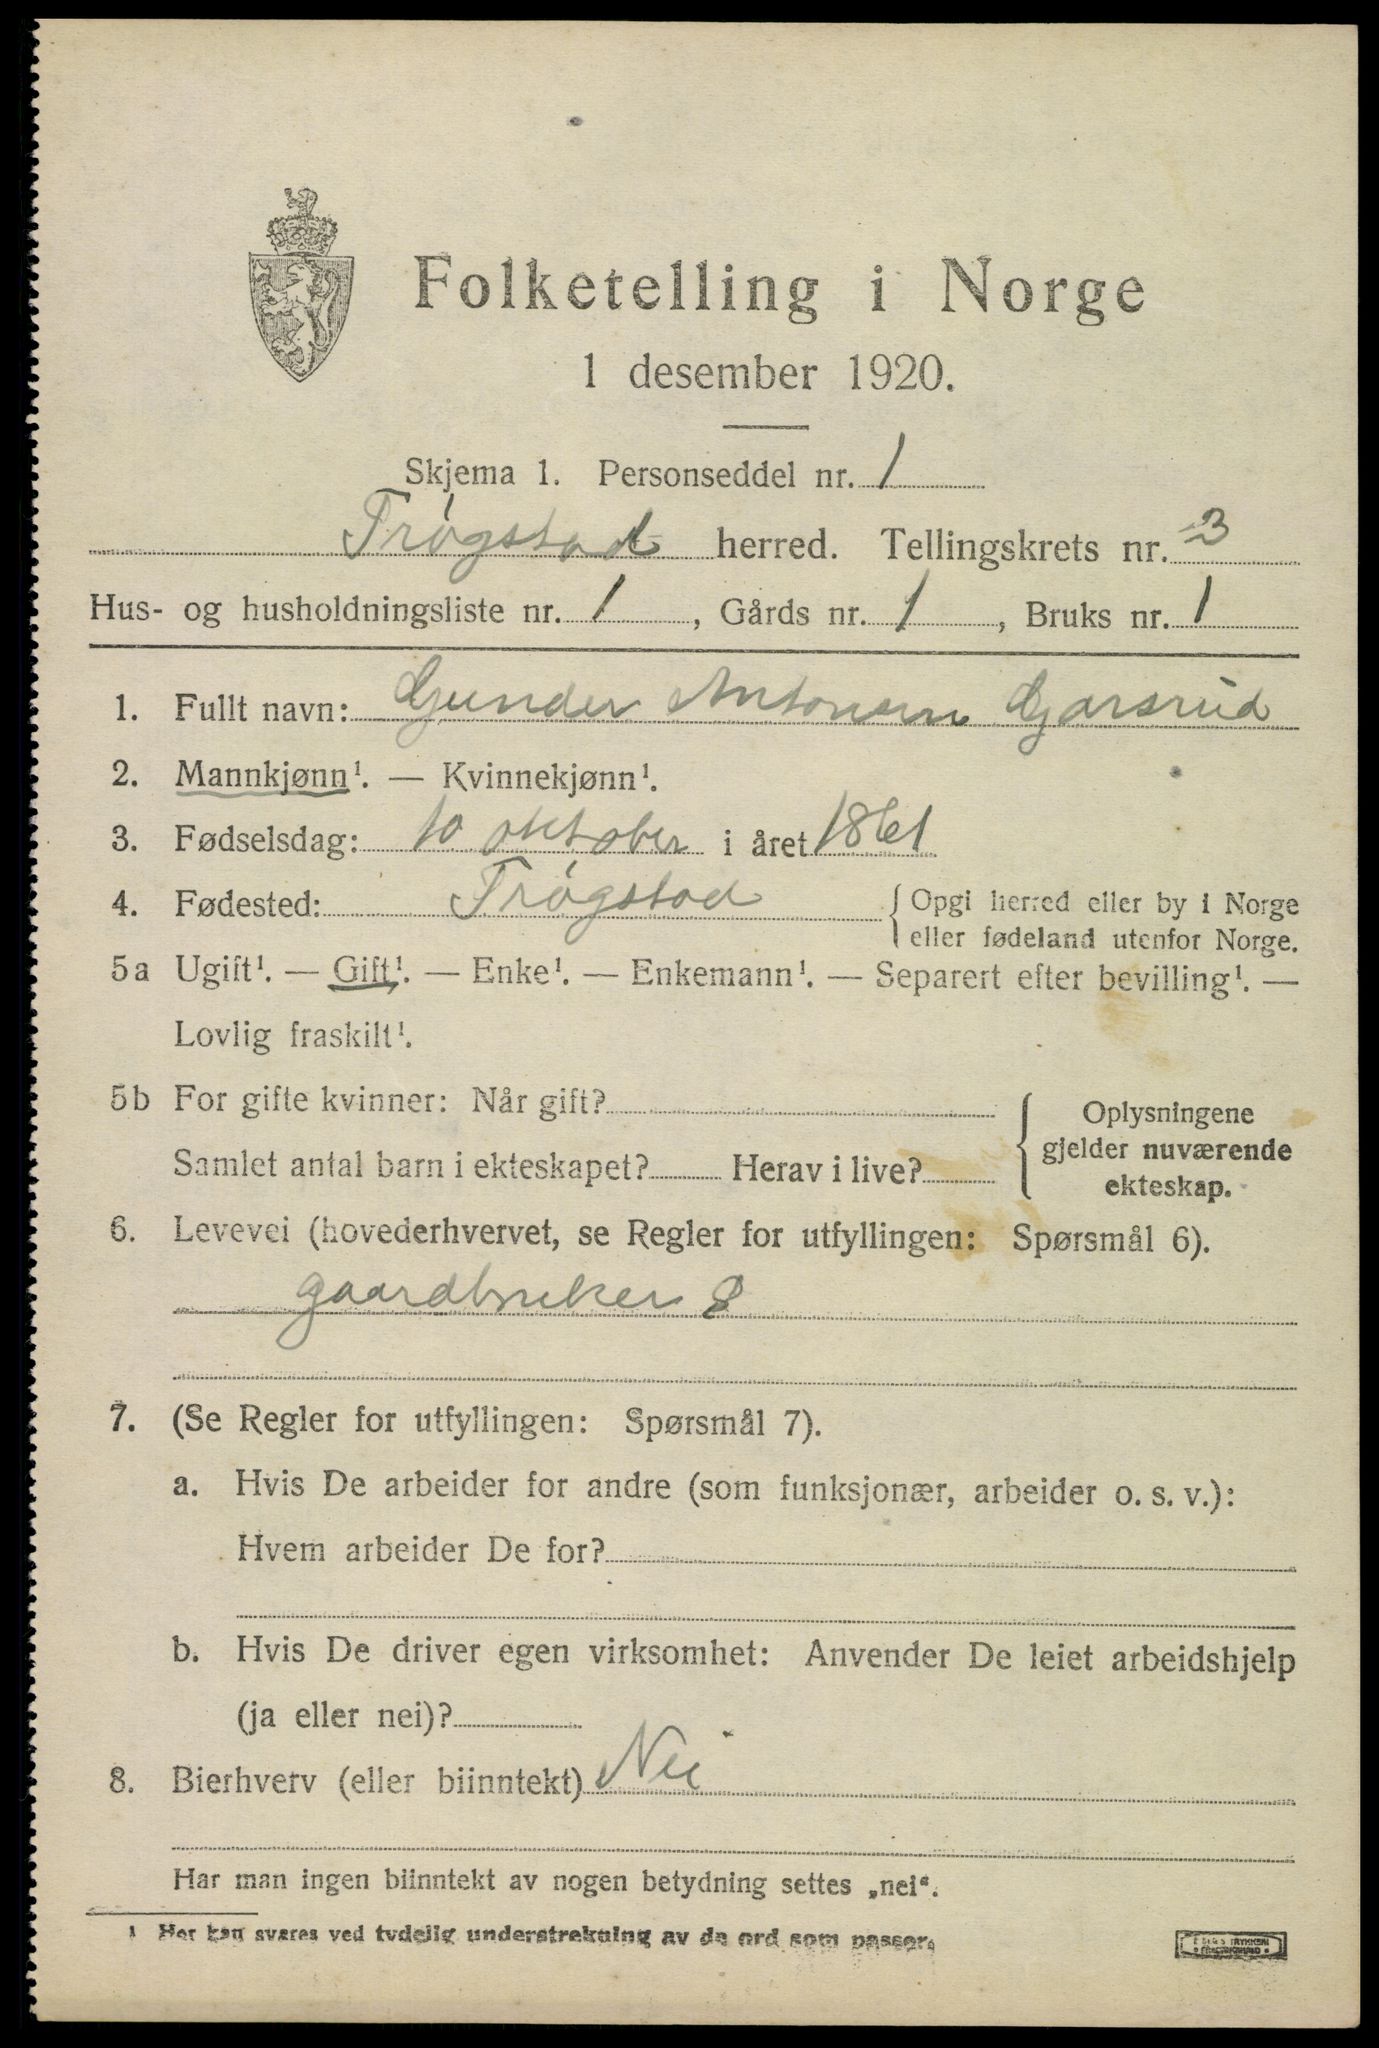 Folketelling i Norge
1 desember 1920.
Skjema 1. Personseddel nr. 1
Trøgstad herred. Tellingskrets nr. 3
Hus- og husholdningsliste nr. 1, Gårds nr. 1, Bruks nr. 1
1. Fullt navn: Gunder Antonsen Garsrud
2. Mannkjønn¹. — Kvinnekjønn¹.
3. Fødselsdag: 10 oktober i året 1861
4. Fødested: Trøgstad { Opgi herred eller by i Norge
eller fødeland utenfor Norge.
5a Ugift¹. — Gift¹. — Enke¹. — Enkemann¹. — Separert efter bevilling¹. —
Lovlig fraskilt¹.
5b For gifte kvinner: Når gift?
Samlet antal barn i ekteskapet? Herav i live?
{ Oplysningene
gjelder nuværende
ekteskap.
6. Levevei (hovederhvervet, se Regler for utfyllingen: Spørsmål 6).
gaardbruker S
7. (Se Regler for utfyllingen: Spørsmål 7).
a. Hvis De arbeider for andre (som funksjonær, arbeider o. s. v.):
Hvem arbeider De for?
b. Hvis De driver egen virksomhet: Anvender De leiet arbeidshjelp
(ja eller nei)?
8. Bierhverv (eller biinntekt) Nei
Har man ingen biinntekt av nogen betydning settes „nei“.
¹ Her kan svares ved tydelig understrekning av de ord som passer.